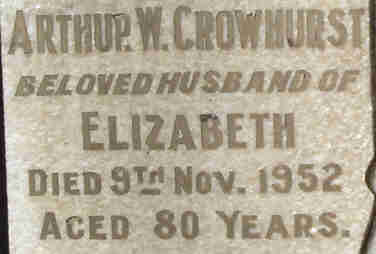 ARTHUR W. CROWHURST
BELOVED HUSBAND OF
ELIZABETH
DIED 9TH NOV. 1952
AGED 80 YEARS.